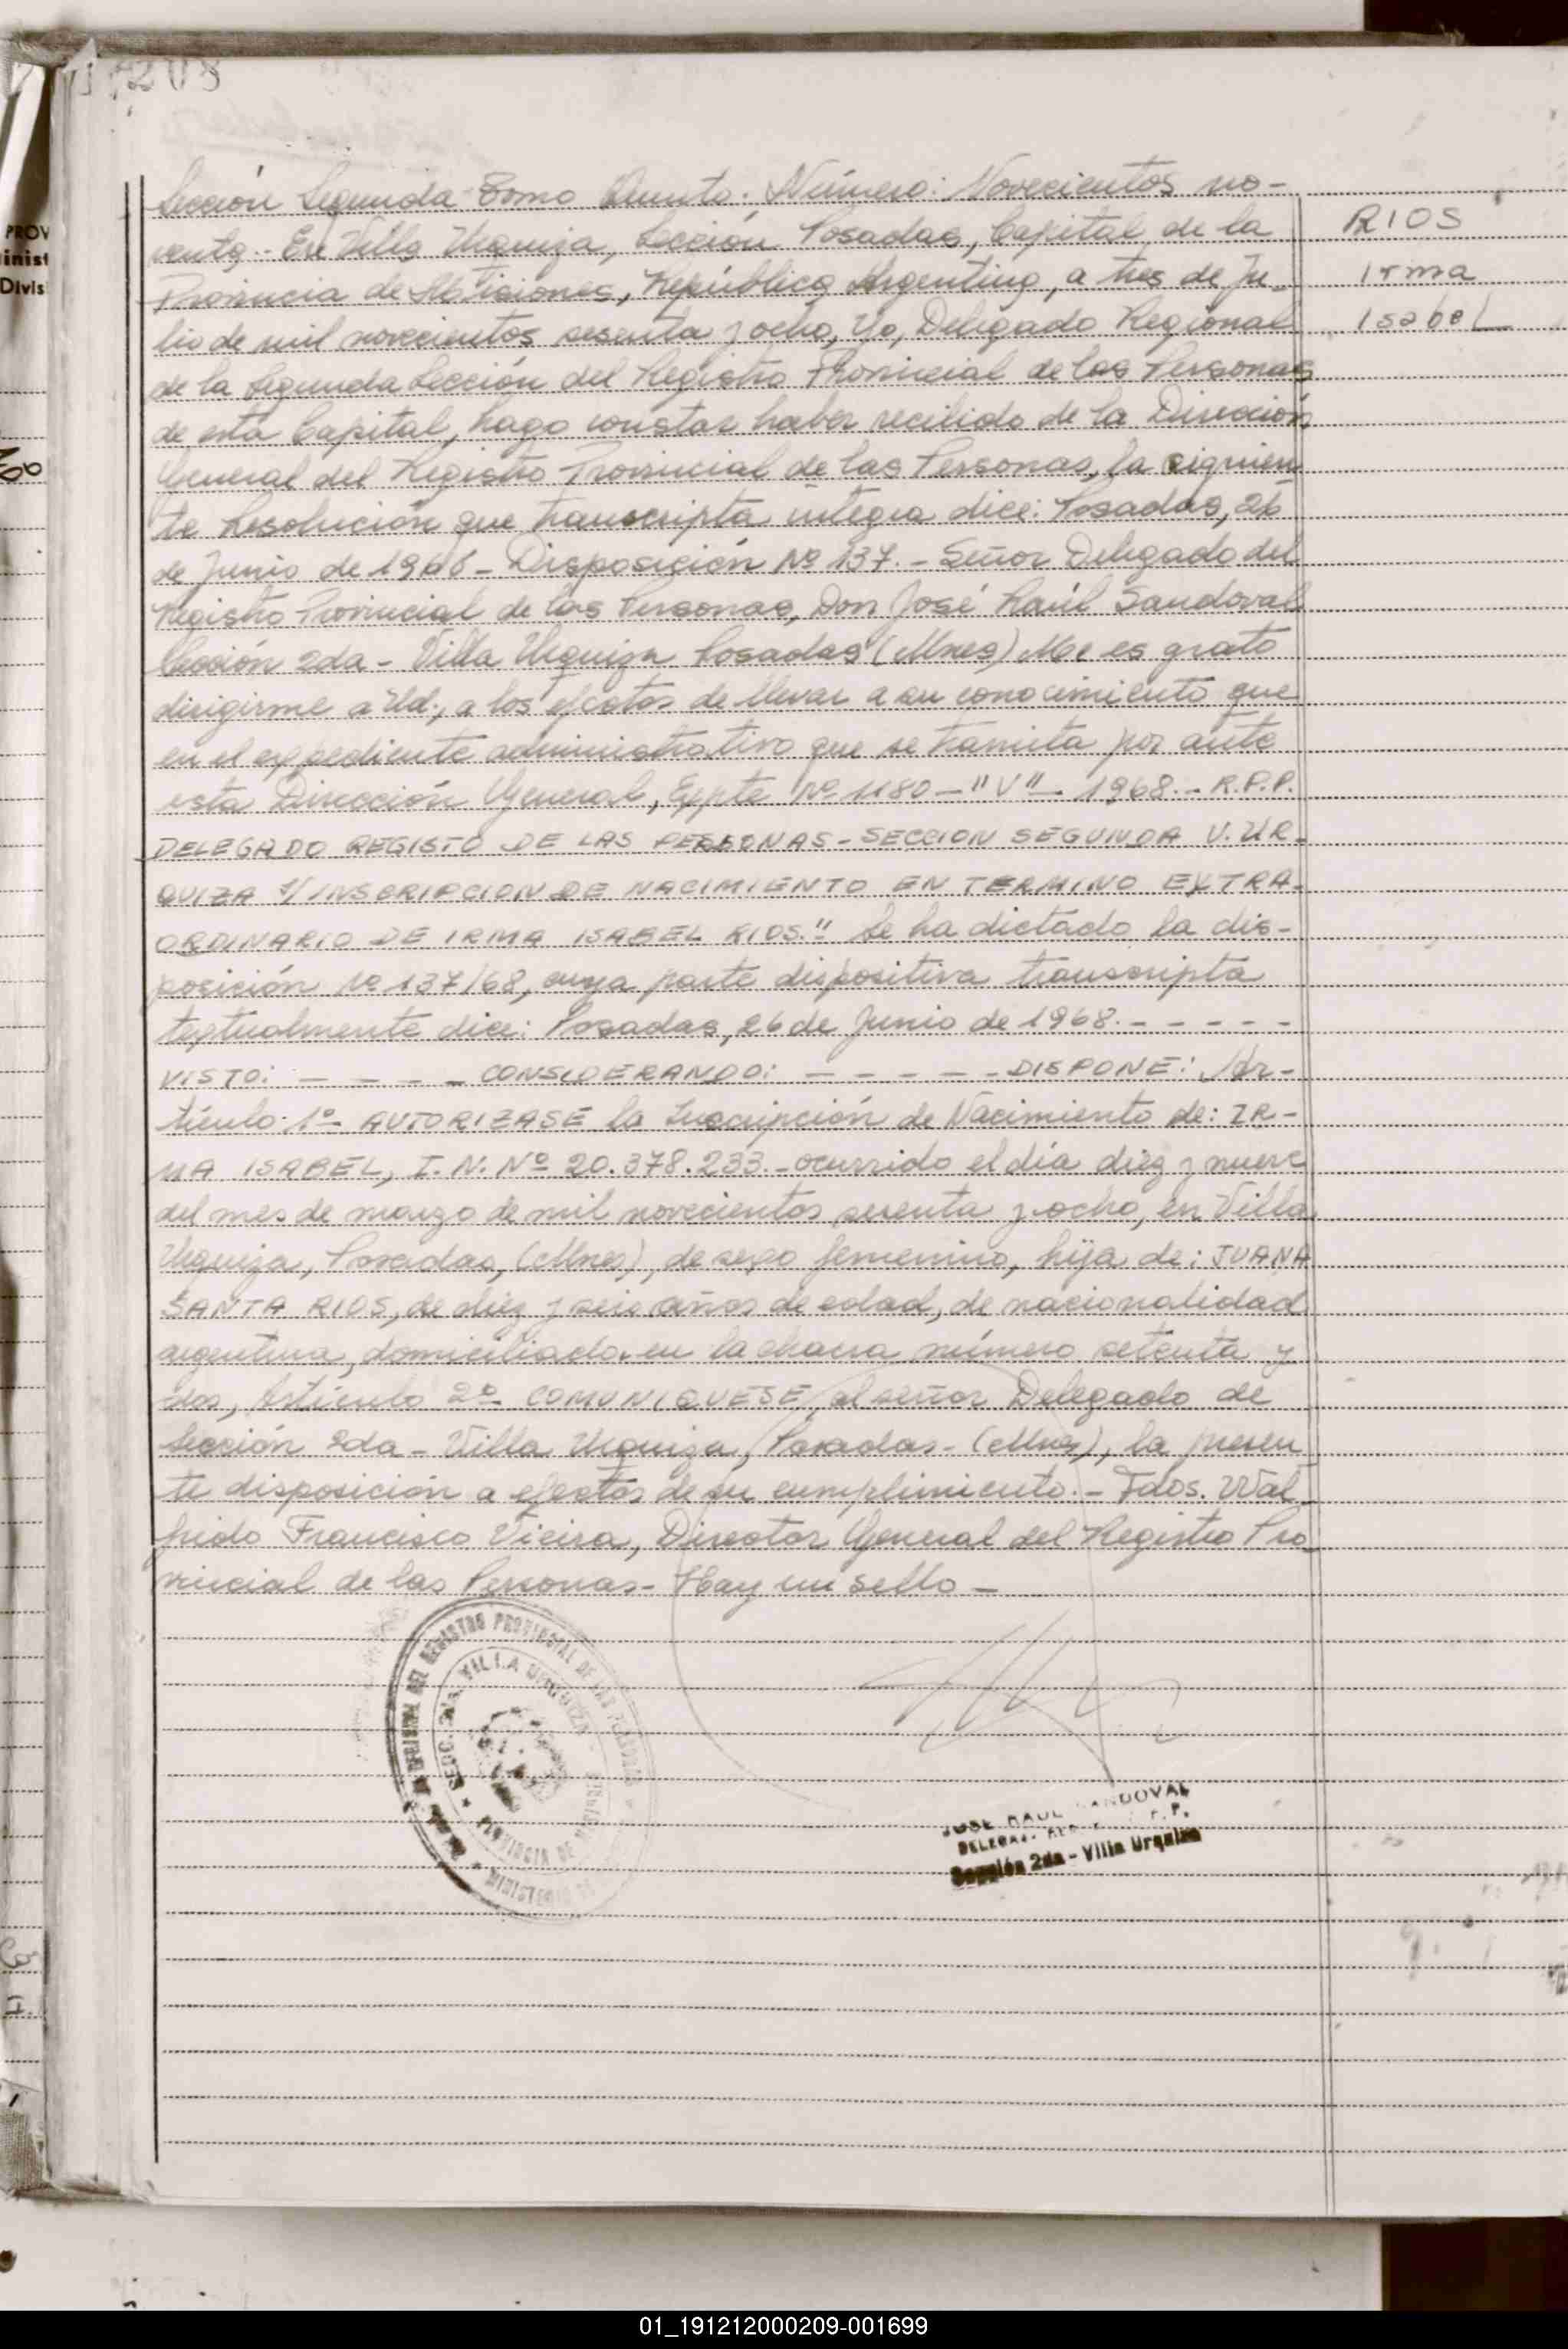 208
PROV
inist
Divis
Sección Segunda - Tomo Quinto: Número: Novecientos no-
venta.- En Villa Urquiza, Sección Posadas, Capital de la
Provincia de Misiones, República Argentina, a tres de Ju-
lio de mil novecientos sesenta y ocho, Yo, Delegado Regional
de la Segunda Sección del Registro Provincial de las Personas
de esta Capital, hago constar haber recibido de la Dirección
General del Registro Provincial de las Personas, la siguien-
te Resolución que transcripta integra dice: Posadas, 26
de Junio de 1968 - Disposición Nº 137. - Señor Delegado del
Registro Provincial de las Personas, Don José Raúl Sandoval
Sección 2da - Villa Urquiza Posadas (Mnes) Me es grato
dirigirme a Ud., a los efectos de llevar a su conocimiento que
en el expediente administrativo que se tramita por ante
esta Dirección General, Expte Nº 1180 - "V" - 1968. - R.P.P.
DELEGADO REGISTO DE LAS PERSONAS - SECCION SEGUNDA V. UR-
QUIZA S/ INSCRIPCION DE NACIMIENTO EN TERMINO EXTRA-
ORDINARIO DE IRMA ISABEL RIOS." Se ha dictado la dis-
posición Nº 137/68, cuya parte dispositiva transcripta
textualmente dice: Posadas, 26 de Junio de 1968. - - - - -
VISTO: - - - - CONSIDERANDO: - - - - - DISPONE: Ar-
tículo 1º AUTORIZASE la Inscripción de Nacimiento de: IR-
MA ISABEL, I. N. Nº 20.378.233. - ocurrido el día diez y nueve
del mes de marzo de mil novecientos sesenta y ocho, en Villa
Urquiza, Posadas, (Mnes), de sexo femenino, hija de: JUANA
SANTA RIOS, de diez y seis años de edad, de nacionalidad
argentina, domiciliada en la chacra número setenta y
dos, Artículo 2º COMUNIQUESE al señor Delegado de
Sección 2da - Villa Urquiza, Posadas - (Mnes), la presen
te disposición a efectos de su cumplimiento. - Fdos. Wal-
frido Francisco Vieira, Director General del Registro Pro-
vincial de las Personas - Hay un sello -
RIOS
Irma
Isabel
REGIONAL DEL REGISTRO PROVINCIAL DE LAS PERSONAS
SECC. 2da. VILLA URQUIZA
PROVINCIA DE
MINISTERIO DE
JOSE RAUL SANDOVAL
Sección 2da - Villa Urquiza
01_191212000209-001699